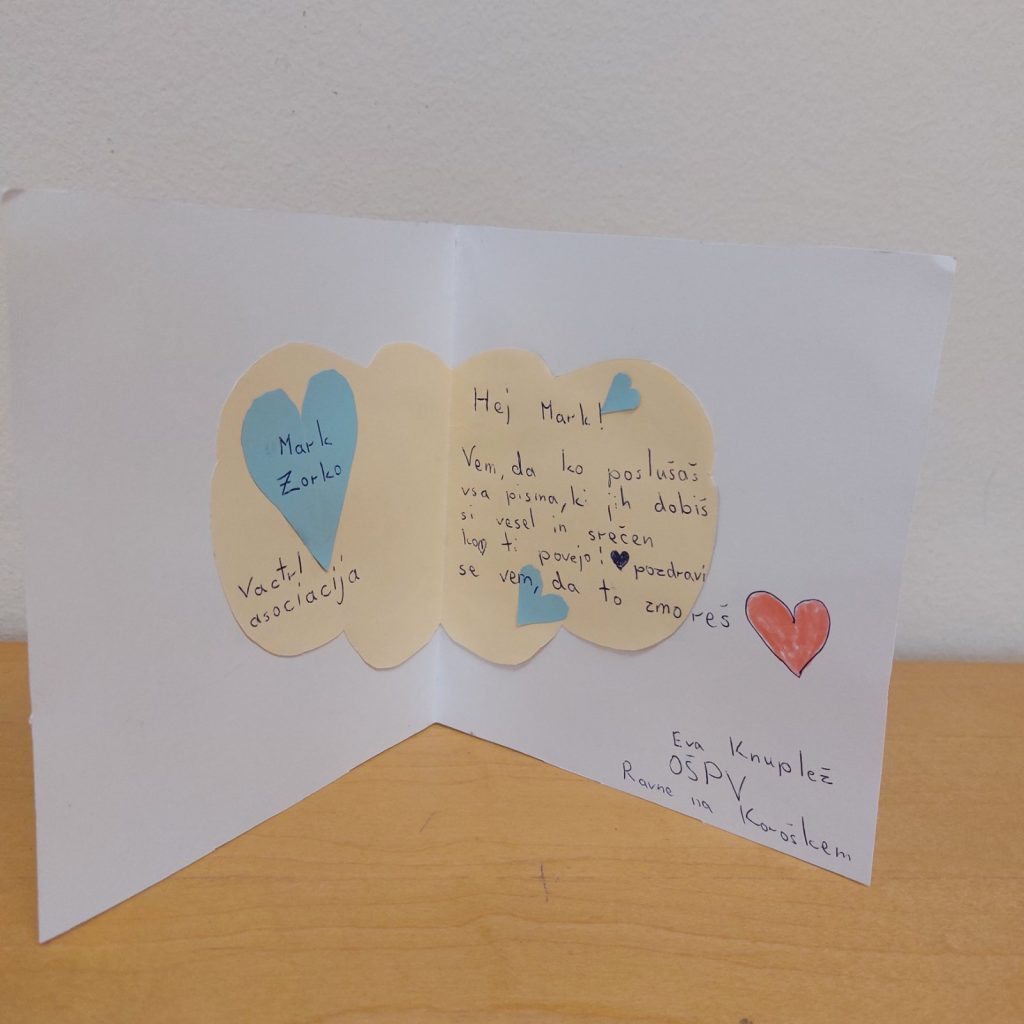 Mark
Zorko
Vactrl
asociacija
Hej Mark!
Vem, da ko poslušaš
vsa pisma, ki jih dobiš
si vesel in srečen
ko ti povejo! pozdravi
se vem, da to zmoreš
Eva Knuplež
OŠPV
Ravne na Koroškem